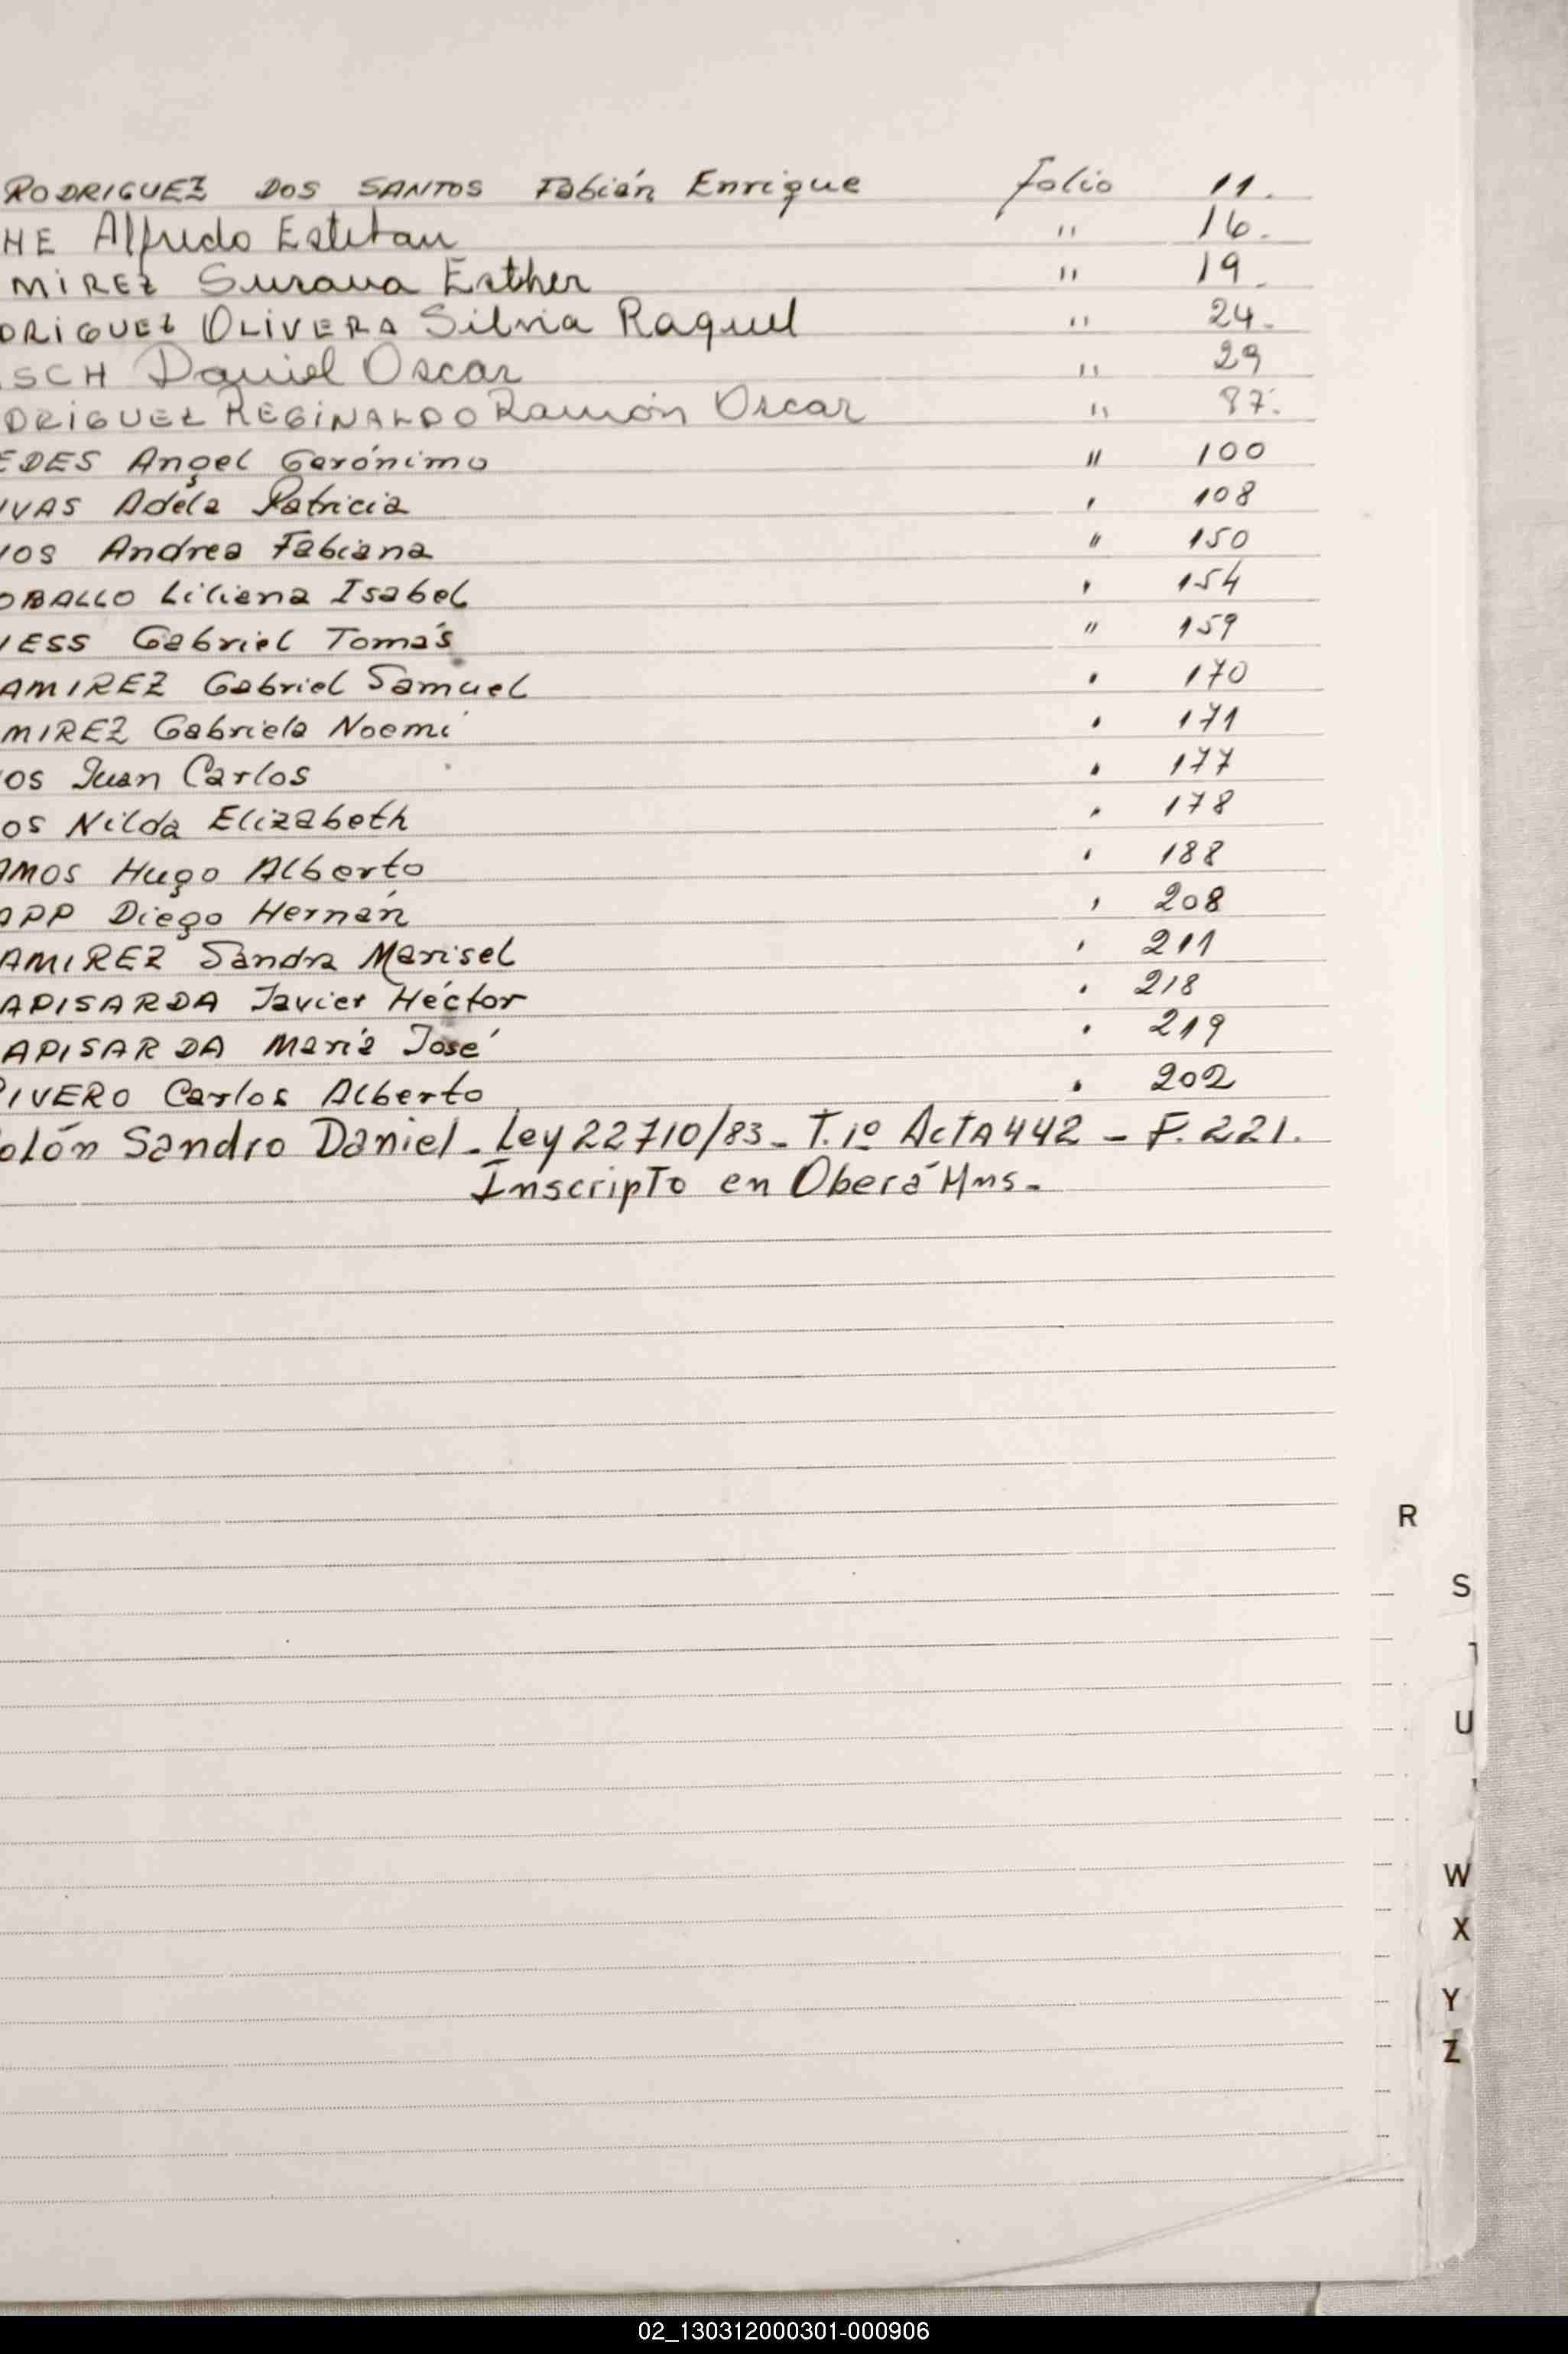 RODRIGUEZ DOS SANTOS Fabián Enrique folio 11.
HE Alfredo Esteban " 16.
MIREZ Susana Esther " 19.
DRIGUEZ OLIVERA Silvia Raquel " 24.
SCH Daniel Oscar " 29
DRIGUEZ REGINALDO Ramón Oscar " 87.
EDES Angel Gerónimo " 100
IVAS Adela Patricia " 108
IOS Andrea Fabiana " 150
OBALLO Liliana Isabel " 154
IESS Gabriel Tomás " 159
AMIREZ Gabriel Samuel " 170
MIREZ Gabriela Noemí " 171
OS Juan Carlos " 177
OS Nilda Elizabeth " 178
AMOS Hugo Alberto " 188
APP Diego Hernán " 208
AMIREZ Sandra Marisel " 211
APISARDA Javier Héctor " 218
APISARDA María José " 219
RIVERO Carlos Alberto " 202
olón Sandro Daniel - Ley 22710/83 - T. 1º Acta 442 - F. 221.
Inscripto en Oberá Mns.
R
S
T
U
W
X
Y
Z
02_130312000301-000906